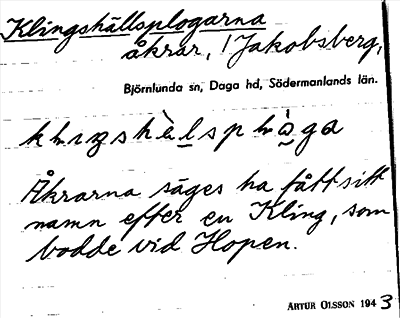 Klingshällsplogarna
åkrar, i Jakobsberg,
Björnlunda sn, Daga hd, Södermanlands län.
Åkrarna säges ha fått sitt
namn efter en Kling, som
bodde vid Hopen.
ARTUR OLSSON 1943